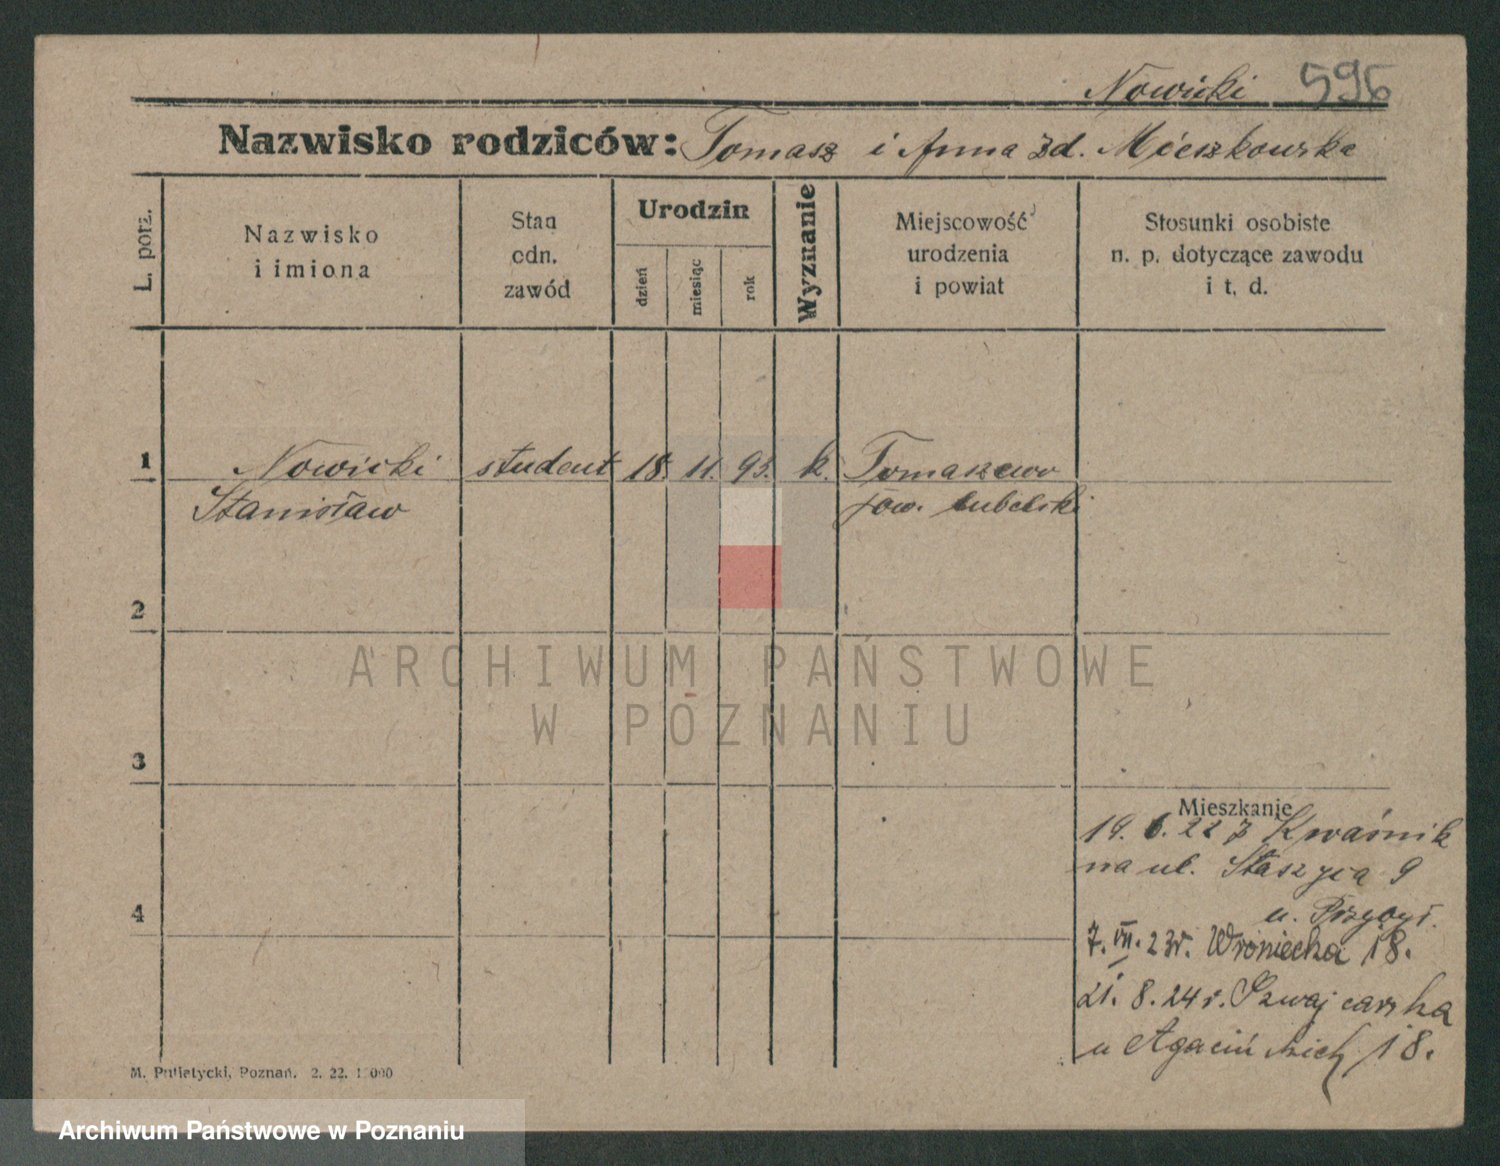 Nowicki 596
Nazwisko rodziców: Tomasz i Anna zd. Mieszkowska
L. porz.
Nazwisko
i imiona
Stan
cdn.
zawód
Urodzin
dzień
miesiąc
rok
Wyznanie
Miejscowość
urodzenia
i powiat
Stosunki osobiste
n. p. dotyczące zawodu
i t. d.
1 Nowicki student 18. 11. 93. k. Tomaszewo
Stanisław pow. Lubelski
2
ARCHIWUM PAŃSTWOWE
W POZNANIU
3
Mieszkanie
19. 6. 22 z Kraśnik
na ul. Staszyca 9
u. Przybył.
4
7. VII. 23r. Wroniecka 18.
21. 8. 24 r. Szwajcarska
u Agacińskich 18.
M. Putiatycki, Poznań. 2. 22. 1 000
Archiwum Państwowe w Poznaniu